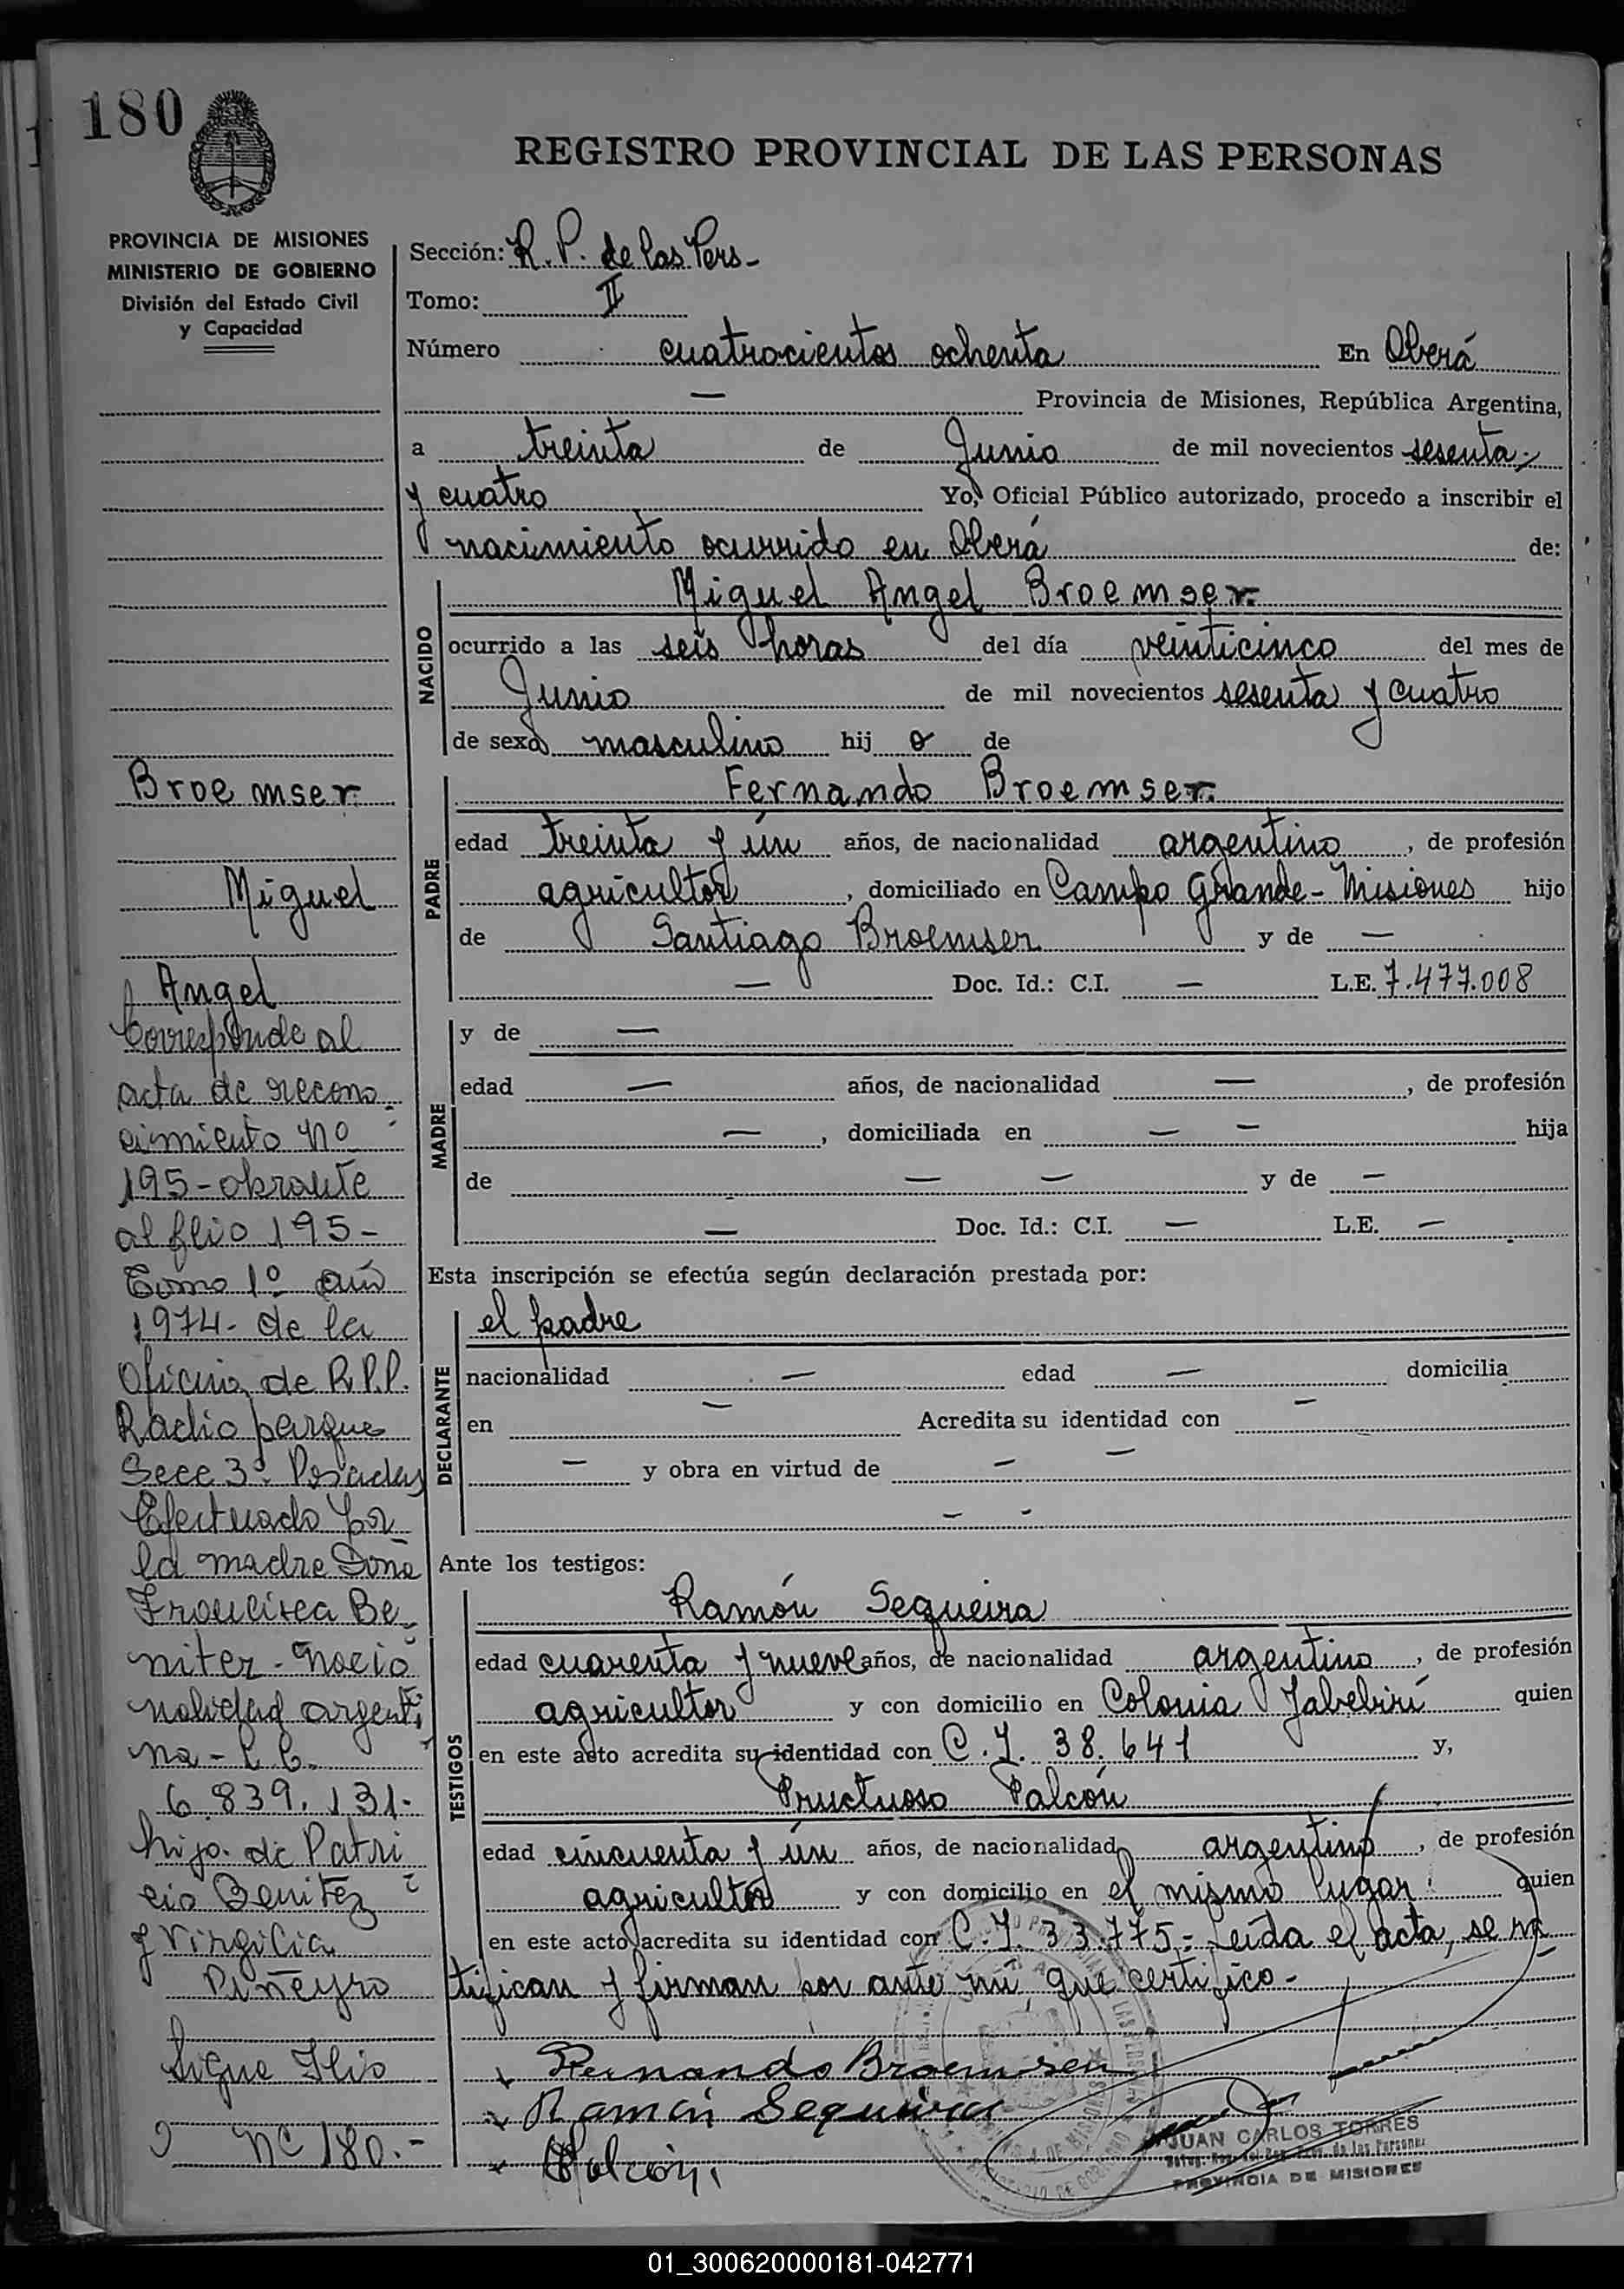 180
REGISTRO PROVINCIAL DE LAS PERSONAS
PROVINCIA DE MISIONES
MINISTERIO DE GOBIERNO
División del Estado Civil
y Capacidad
Sección: R. P. de las Pers-
Tomo: II
Número cuatrocientos ochenta En Oberá
— Provincia de Misiones, República Argentina,
a treinta de Junio de mil novecientos sesenta
y cuatro Yo, Oficial Público autorizado, procedo a inscribir el
nacimiento ocurrido en Oberá de:
NACIDO
Miguel Angel Broemser
ocurrido a las seis horas del día veinticinco del mes de
Junio de mil novecientos sesenta y cuatro
de sexo masculino hij o de
PADRE
Fernando Broemser
edad treinta y ún años, de nacionalidad argentino, de profesión
agricultor, domiciliado en Campo Grande - Misiones hijo
de Santiago Broemser y de —
— Doc. Id.: C.I. — L.E. 7.477.008
MADRE
y de —
edad — años, de nacionalidad —, de profesión
—, domiciliada en — — hija
de — — y de —
— Doc. Id.: C.I. — L.E. —
Esta inscripción se efectúa según declaración prestada por:
DECLARANTE
el padre
nacionalidad — edad — domicilia
en — Acredita su identidad con —
— y obra en virtud de — —
— -
Ante los testigos:
TESTIGOS
Ramón Sequeira
edad cuarenta y nueve años, de nacionalidad argentino, de profesión
agricultor y con domicilio en Colonia Yabebirí quien
en este acto acredita su identidad con C.I. 38.641 y,
Fructuoso Falcón
edad cincuenta y ún años, de nacionalidad argentino, de profesión
agricultor y con domicilio en el mismo lugar quien
en este acto acredita su identidad con C.I. 33.775.- Leída el acta, se ra
tifican y firman por ante mí, que certifico-
Fernando Broemser
Ramón Sequeira
Falcón
JUAN CARLOS TORRES
PROVINCIA DE MISIONES
Broemser
Miguel
Angel
Corresponde al
acta de recono
cimiento Nº
195-obrante
al flio 195-
Tomo 1º año
1974- de la
Oficina de R.P.P.
Radio parque
Secc 3º Posadas
Efectuado por
la madre Doña
Francisca Be
nitez - nacio
nalidad argenti
na - L C.
6.839.131.
hija de Patri
cio Benitez
y Virgilia
Piñeyro
Sigue flio
Nº 180.-
01_300620000181-042771